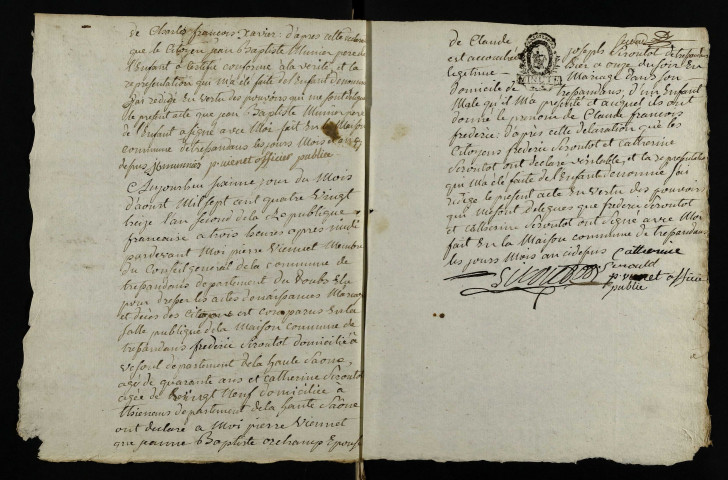 de Charles françois Xavier: d'après cette declaration
que le Citoyen jean Baptiste Munier pere de
l'Enfant a Certifié conforme a la verité, et la
representation qui M'a été faite de l'Enfant denommé
j'ai redigé en vertu des pouvoirs qui me sont délégués
le present acte que jean Baptiste Munier pere
de l'enfant a signé avec Moi fait En la Maison
commune de trepandans les jours Mois et an
depus jb munnier p vienet officier publice
Aujourdui saime jour du Mois
d'aout Mil sept cent quatre Vingt
treize l'an second de la Republique
francaise a trois heures apres midi
pardevant Moi pierre Viennet Membre
du Conseil general de la commune de
trepandans departement du Doubs Elu
pour dresser les actes de naissances Mariages
et décès des Citoyens est comparus En la
salle publique de la Maison commune de
trepandans frederic Seroutot domicilié à
Vesoul departement de la haute Saône,
agée de quarante ans et Catherine Seroutot
agée de Vingt Neuf domiciliée à
departement de la haute Saône
ont declaré a Moi pierre Viennet
que jeanne Baptiste orchamp Epouse
de Claude joseph Seroutot de trepandans
est accouchée hier a onze du soir En
legitime Mariage dans son
domicile de trepandans, d'un Enfant
Male qu'il M'a presenté et auquel ils ont
donné le prenom de Claude francois
frederic: d'après cette declaration que les
Citoyens frederic Seroutot et Catherine
Seroutot ont declaré veritable, et la representation
qui M'a été faite de l'Enfant denommé j'ai
redigé le present acte En vertu des pouvoirs
qui Me sont delegues que frederic Seroutot
et Catherine Seroutot ont signé avec Moi
fait En la Maison commune de trepandans
les jours Mois an cidessus Catherine
Seroutd
p viennet officier
publice